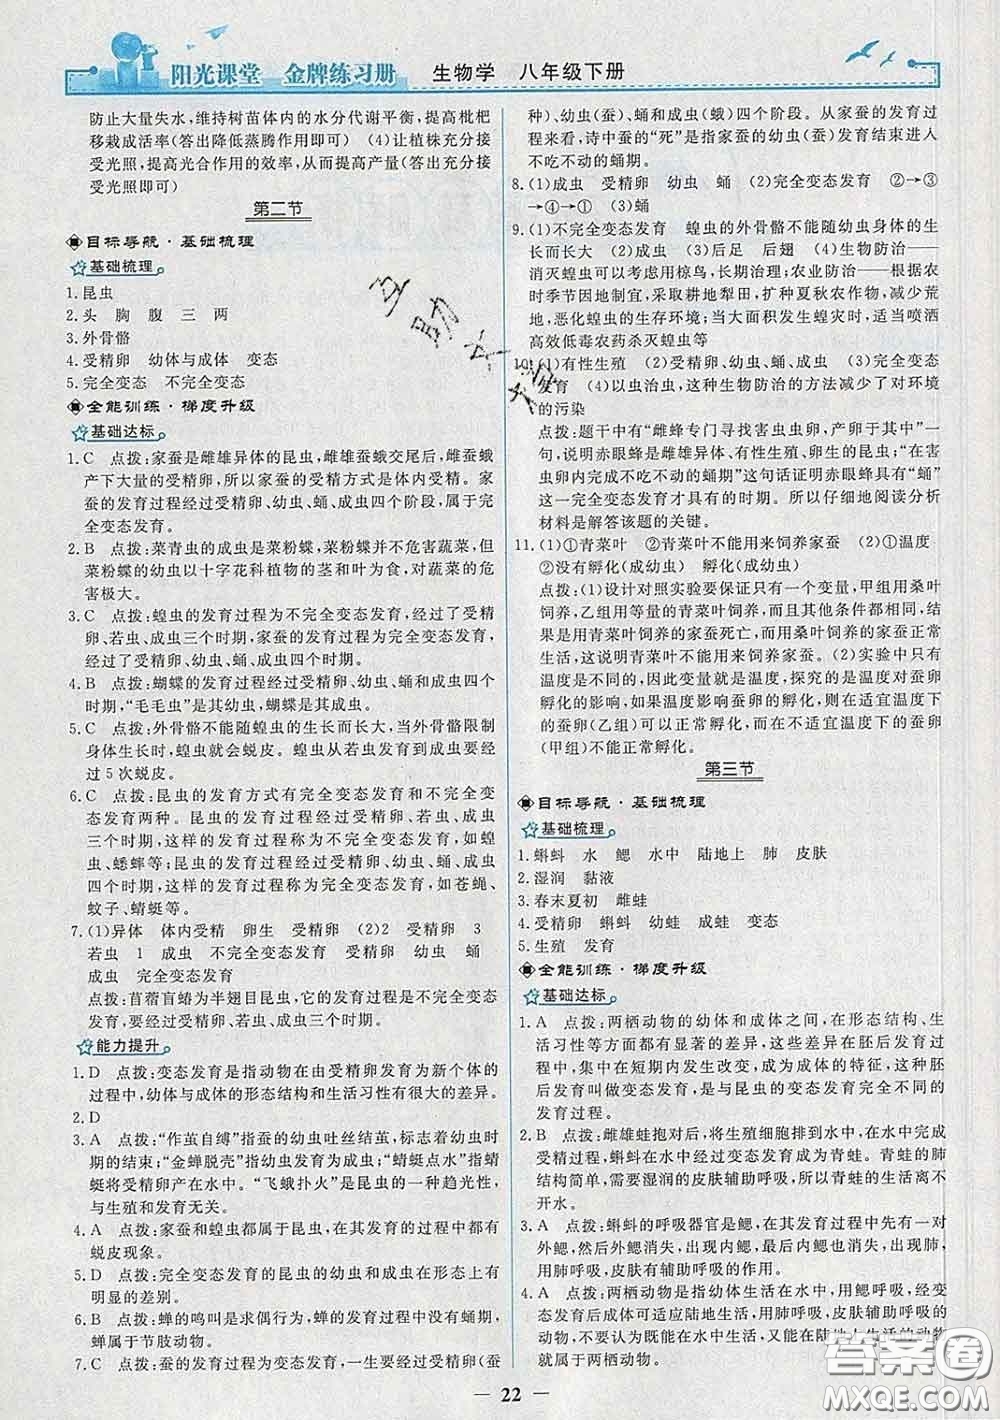 阳光课堂 金牌练习册 生物学 八年级下册
防止大量失水,维持树苗体内的水分代谢平衡,提高枇杷
移栽成活率(答出降低蒸腾作用即可) (4)让植株充分接
受光照,提高光合作用的效率,从而提高产量(答出充分接
受光照即可)
第二节
目标导航·基础梳理
基础梳理
1.昆虫
2.头 胸 腹 三 两
3.外骨骼
4.受精卵 幼体与成体 变态
5.完全变态 不完全变态
全能训练·梯度升级
基础达标
1.C 点拨:家蚕是雌雄异体的昆虫,雌雄蚕蛾交尾后,雌蚕蛾
产下大量的受精卵,所以家蚕的受精方式是体内受精。家
蚕的发育过程经过受精卵、幼虫、蛹、成虫四个阶段,属于完
全变态发育。
2.B 点拨:菜青虫的成虫是菜粉蝶,菜粉蝶并不危害蔬菜,但
菜粉蝶的幼虫以十字花科植物的茎和叶为食,对蔬菜的危
害极大。
3.C 点拨:蝗虫的发育过程为不完全变态发育,经过了受精
卵、若虫、成虫三个时期,家蚕的发育过程为完全变态发育,
经过了受精卵、幼虫、蛹、成虫四个时期。
4.B 点拨:蝴蝶的发育过程经过受精卵、幼虫、蛹和成虫四个
时期,“毛毛虫”是其幼虫,蝴蝶是其成虫。
5.C 点拨:外骨骼不能随蝗虫的生长而长大,当外骨骼限制
身体生长时,蝗虫就会蜕皮。蝗虫从若虫发育到成虫要经
过5次蜕皮。
6.C 点拨:昆虫的发育方式有完全变态发育和不完全变态
发育两种。昆虫的发育过程经过受精卵、若虫、成虫
三个时期,这样的发育过程称为不完全变态发育,如蝗
虫、蟋蟀等;昆虫的发育过程经过受精卵、幼虫、蛹、成虫
四个时期,这样的发育过程称为完全变态发育,如苍蝇、
蚊子、蜻蜓等。
7.(1)异体 体内受精 卵生 受精卵 (2)2 受精卵 3
若虫 1 成虫 不完全变态发育 受精卵 幼虫 蛹
成虫 完全变态发育
点拨:苜蓿盲蝽为半翅目昆虫,它的发育过程是不完全变态
发育,要经过受精卵、若虫、成虫三个时期。
能力提升
1.D 点拨:变态发育是指动物在由受精卵发育为新个体的
过程中,幼体与成体的形态结构和生活习性有很大的差异。
2.D
3.A 点拨:“作茧自缚”指蚕的幼虫吐丝结茧,标志着幼虫时
期的结束;“金蝉脱壳”指幼虫发育为成虫;“蜻蜓点水”指蜻
蜓将受精卵产在水中。“飞蛾扑火”是昆虫的一种趋光性,
与生殖和发育无关。
4.A 点拨:家蚕和蝗虫都属于昆虫,在其发育的过程中都有
蜕皮现象。
5.D 点拨:完全变态发育的昆虫的幼虫和成虫在形态上有
明显的差别。
6.B 点拨:蝉的鸣叫是求偶行为,蝉的发育过程中没有蛹期,
蝉属于节肢动物。
7.C 点拨:蚕的发育为完全变态发育,一生要经过受精卵(蚕
种)、幼虫(蚕)、蛹和成虫(蛾)四个阶段。从家蚕的发育过
程来看,诗中蚕的“死”是指家蚕的幼虫(蚕)发育结束进入
不吃不动的蛹期。
8.(1)成虫 受精卵 幼虫 蛹 (2)完全变态发育 ②→③
→④→① (3)蛹
9.(1)不完全变态发育 蝗虫的外骨骼不能随幼虫身体的生
长而长大 (2)成虫 (3)后足 后翅 (4)生物防治——
消灭蝗虫可以考虑用椋鸟,长期治理;农业防治——根据农
时季节因地制宜,采取耕地犁田,扩种夏秋农作物,减少荒
地,恶化蝗虫的生存环境;当大面积发生蝗灾时,适当喷洒
高效低毒农药杀灭蝗虫等
10.(1)有性生殖 (2)受精卵、幼虫、蛹、成虫 (3)完全变态
发育 (4)以虫治虫,这种生物防治的方法减少了对环境
的污染
点拨:题干中有“雌蜂专门寻找害虫虫卵,产卵于其中”一
句,说明赤眼蜂是雌雄异体、有性生殖、卵生的昆虫;“在害
虫卵内完成不吃不动的蛹期”这句话证明赤眼蜂具有“蛹”
这一完全变态发育才具有的时期。所以仔细地阅读分析
材料是解答该题的关键。
11.(1)①青菜叶 ②青菜叶不能用来饲养家蚕 (2)①温度
②没有孵化(成幼虫) 孵化(成幼虫)
点拨:(1)设计对照实验要保证只有一个变量,甲组用桑叶
饲养,乙组用等量的青菜叶饲养,而其他条件都相同,如果
结果是用青菜叶饲养的家蚕死亡,而用桑叶饲养的家蚕正常
生活,这说明青菜叶不能用来饲养家蚕。(2)实验中只有
温度是不同的,因此变量就是温度,探究的是温度对蚕卵
孵化的影响,如果温度影响蚕卵的孵化,则在适宜温度下
的蚕卵(乙组)可以正常孵化,而在不适宜温度下的蚕卵
(甲组)不能正常孵化。
第三节
目标导航·基础梳理
基础梳理
1.蝌蚪 水 鳃 水中 陆地上 肺 皮肤
2.湿润 黏液
3.春末夏初 雌蛙
4.受精卵 蝌蚪 幼蛙 成蛙 变态
5.生殖 发育
全能训练·梯度升级
基础达标
1.A 点拨:两栖动物的幼体和成体之间,在形态结构、生
活习性等方面都有显著的差异,这些差异在胚后发育过程
中,集中在短期内发生改变,成为成体的特征,这种胚
后发育叫做变态发育,是与昆虫的变态发育完全不同的
发育过程。
2.B 点拨:雌雄蛙抱对后,将生殖细胞排到水中,在水中完成
受精过程,蝌蚪在水中经过变态发育成为青蛙。青蛙的肺
结构简单,需要湿润的皮肤辅助呼吸,所以青蛙的生活离不
开水。
3.A 点拨:蝌蚪的呼吸器官是鳃,在其发育过程中先有一对
外鳃,然后外鳃消失,出现内鳃,最后内鳃也消失,出现肺,用
肺进行呼吸,皮肤有辅助呼吸的作用。
4.A 点拨:是指幼体生活在水中,用鳃呼吸,经变
态发育后成体可适应陆地生活,用肺呼吸,皮肤辅助呼吸的
动物,不要认为既能在水中生活,又能在陆上生活的动物
就属于两栖动物。
22
答案圈
MXQE.COM